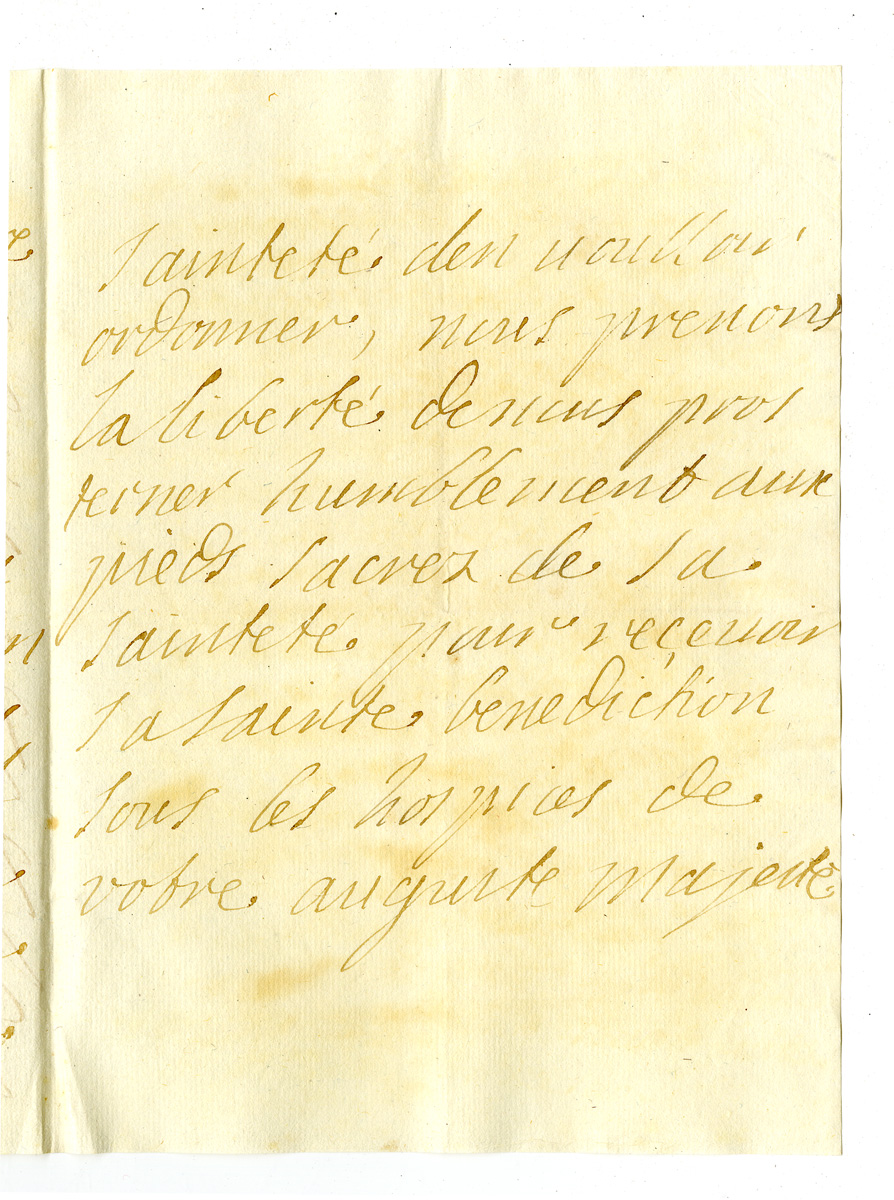 sainteté den uoulloir
ordonner, nous prenons
la liberté denous pros
terner humblement aux
pieds sacrez de sa
sainteté pour reçeuoir
sa sainte benediction
sous les hospices de
votre auguste majesté